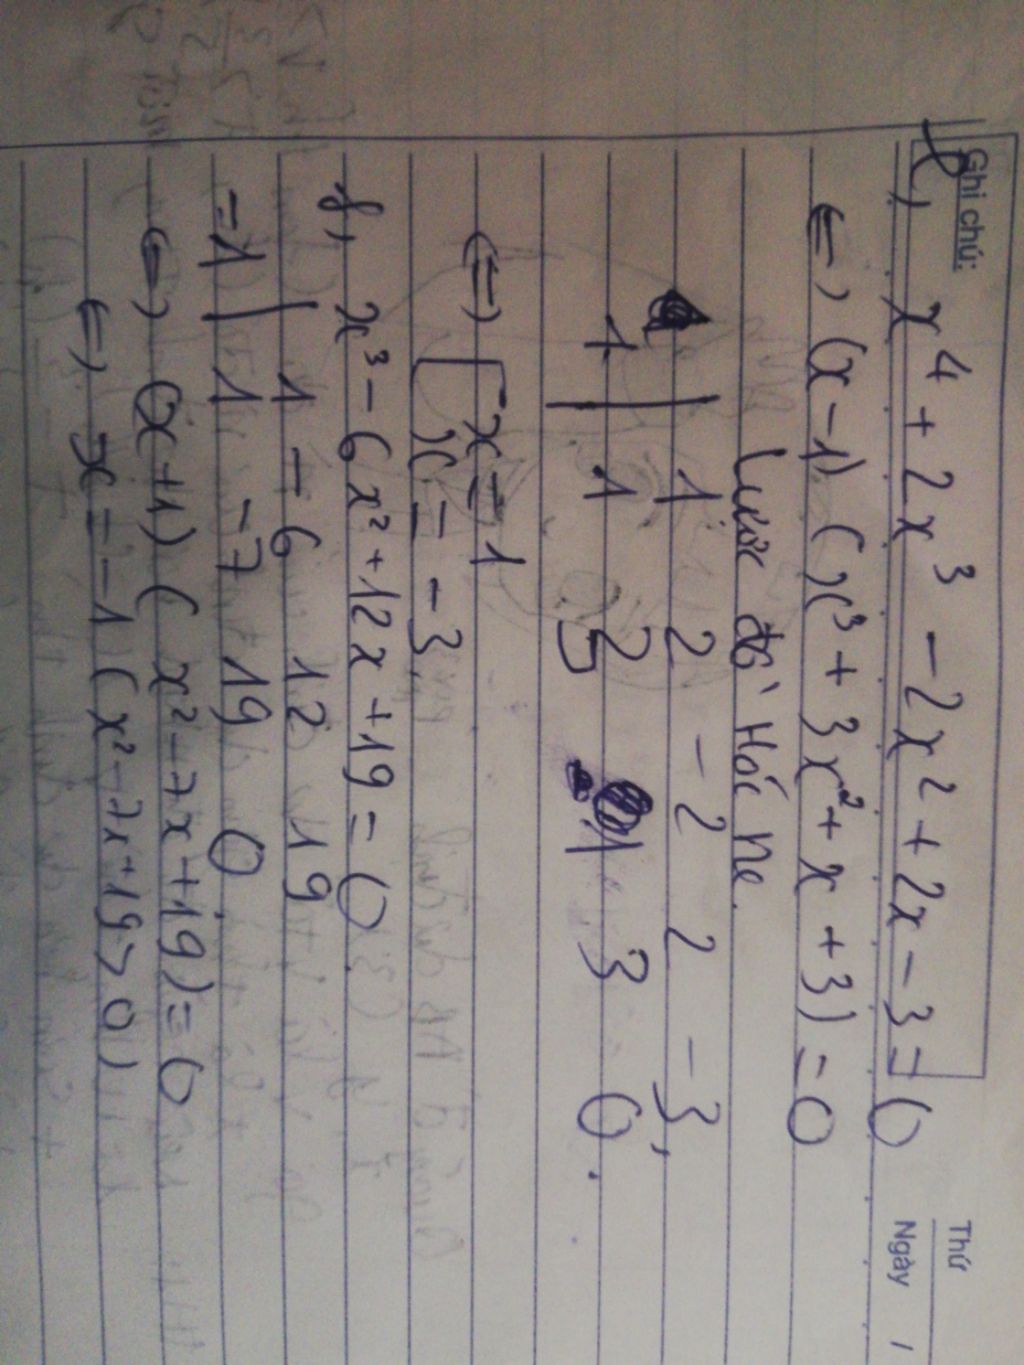 Ghi chú:
Thứ
Ngày
e, x⁴ + 2x³ - 2x² + 2x - 3 = 0
<=> (x - 1) (x³ + 3x² + x + 3) = 0
Lược đồ Hóc ne.
1 2 -2 2 -3,
1 | 1 2 1 3 0.
5
<=> [ x = 1
x = -3,
f, x³ - 6x² + 12x + 19 = 0
1 -6 12 19
-1 | 1 -7 19 0
<=> (x + 1) (x² - 7x + 19) = 0
<=> x = -1 (x² - 7x + 19 > 0)